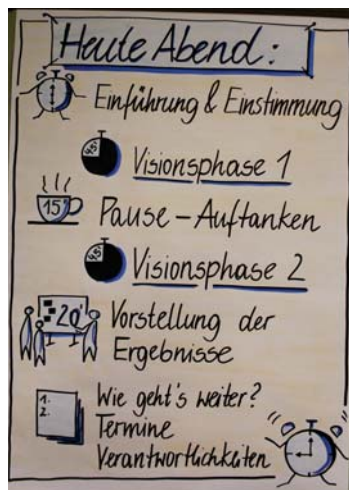 Heute Abend:
Einführung & Einstimmung
45'
Visionsphase 1
15'
Pause - Auftanken
45'
Visionsphase 2
20'
Vorstellung der
Ergebnisse
1.
2.
Wie geht's weiter?
Termine
Verantwortlichkeiten